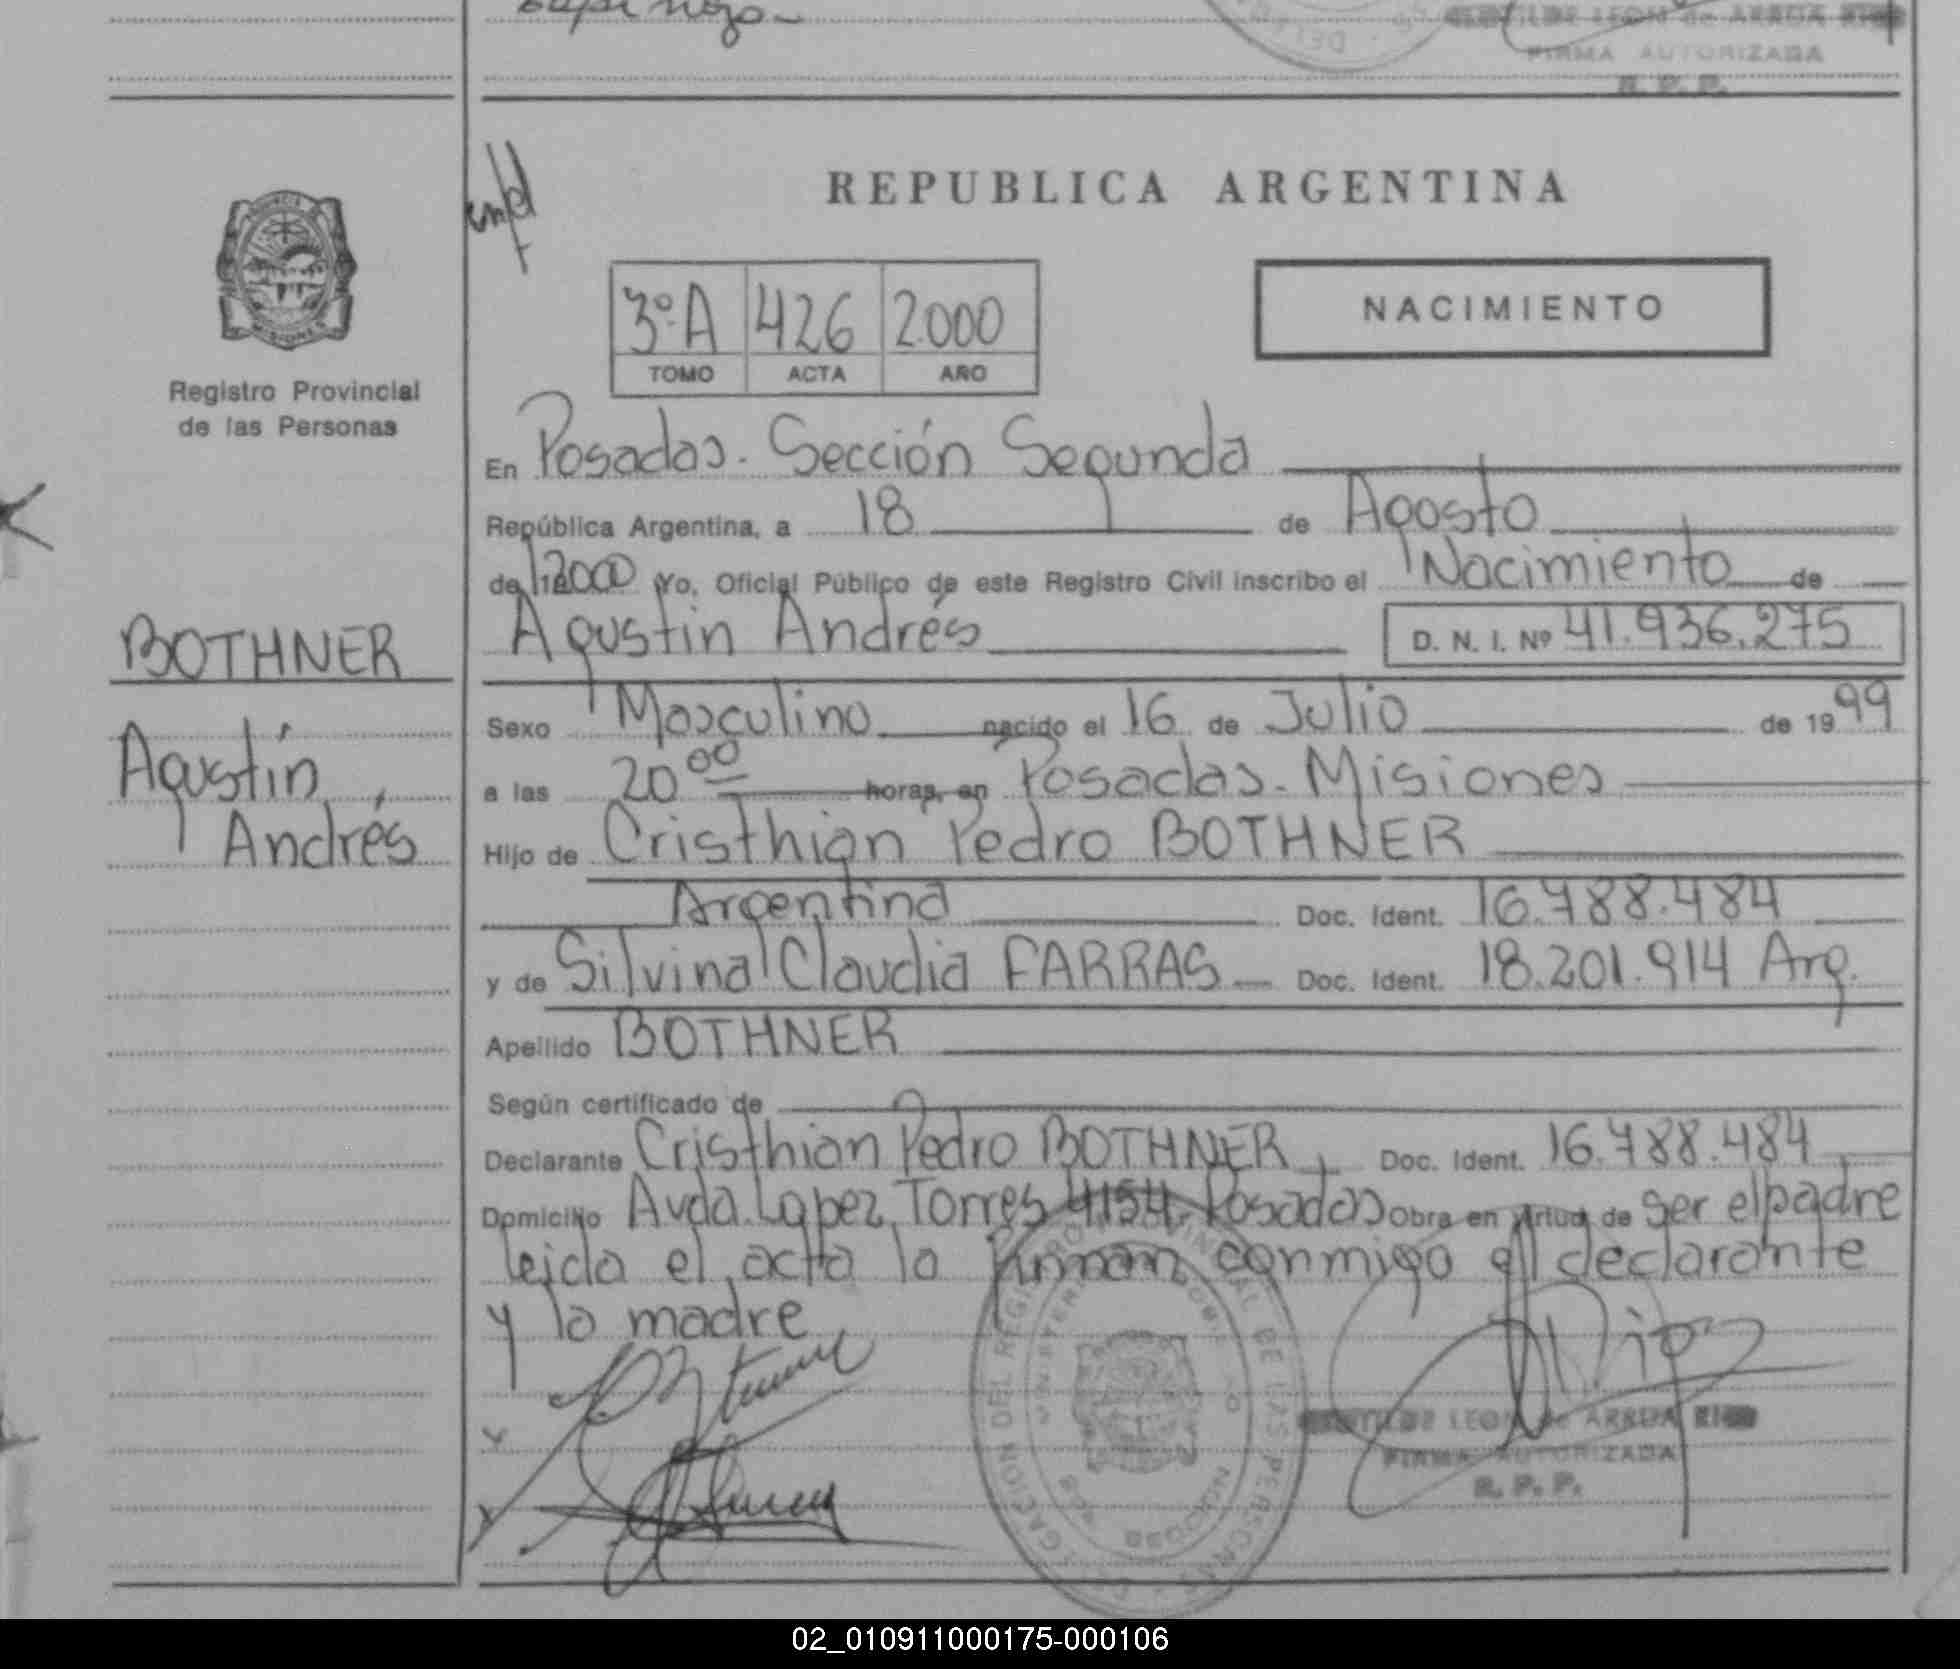 FIRMA AUTORIZADA
R. P. P.
REPUBLICA ARGENTINA
3º A 426 2.000
TOMO ACTA AÑO
NACIMIENTO
MISIONES
Registro Provincial
de las Personas
En Posadas. Sección Segunda
República Argentina, a 18 de Agosto
de 2000 Yo, Oficial Público de este Registro Civil inscribo el Nacimiento de
Agustín Andrés D. N. I. Nº 41.936.275
BOTHNER
Agustín
Andrés
Sexo Masculino nacido el 16 de Julio de 1999
a las 20 00 horas, en Posadas. Misiones
Hijo de Cristhian Pedro BOTHNER
Argentina Doc. Ident. 16.788.484
y de Silvina Claudia FARRAS Doc. Ident. 18.201.914 Arg.
Apellido BOTHNER
Según certificado de
Declarante Cristhian Pedro BOTHNER Doc. Ident. 16.788.484
Domicilio Avda. Lopez Torres 4154. Posadas Obra en virtud de ser el padre
leida el acta la firman conmigo el declarante
y la madre
DELEGACION DEL REGISTRO PROVINCIAL DE LAS PERSONAS
LEON de ARRUA
FIRMA AUTORIZADA
R. P. P.
02_010911000175-000106